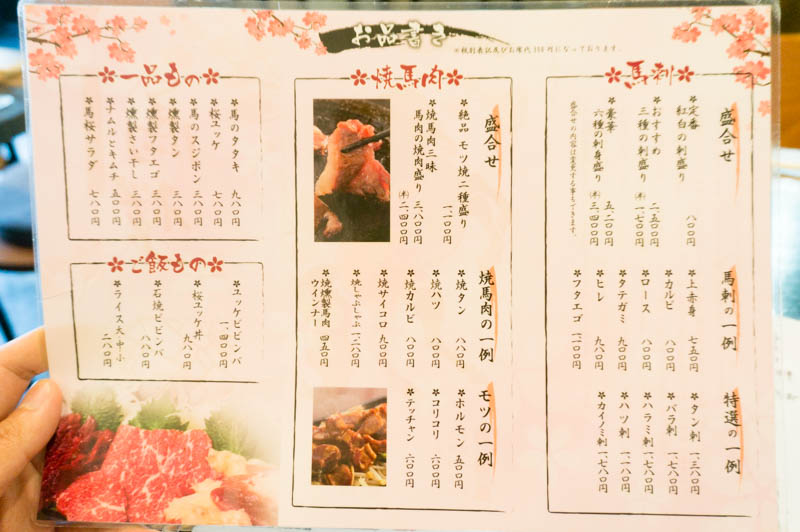 お品書き
※税別表記及びお席代300円になっております。
馬刺
盛合せ
定番
紅白の刺盛り 八〇〇円
おすすめ
三種の刺盛り 二、五〇〇円
㊍一、七〇〇円
豪華
六種の刺身盛り 五、二〇〇円
㊍三、四〇〇円
盛合せの内容は変更する事もできます。
馬刺の一例
上赤身 七五〇円
カルビ 八〇〇円
ロース 八〇〇円
タテガミ 九〇〇円
ヒレ 九八〇円
フタエゴ 一、一〇〇円
特選の一例
タン刺 一、三八〇円
バラ刺 一、七八〇円
ハラミ刺 一、七八〇円
ハツ刺 一、一八〇円
カイノミ刺 一、七八〇円
焼馬肉
盛合せ
絶品 モツ焼二種盛り 一、一〇〇円
焼馬肉三昧
馬肉の焼肉盛り 三、八〇〇円
㊍二、四〇〇円
焼馬肉の一例
焼タン 八八〇円
焼ハツ 八〇〇円
焼カルビ 八〇〇円
焼サイコロ 九〇〇円
焼しゃぶしゃぶ 一、二八〇円
焼燻製馬肉
ウインナー 四五〇円
モツの一例
ホルモン 五〇〇円
コリコリ 六〇〇円
テッチャン 六〇〇円
一品もの
馬のタタキ 九八〇円
桜ユッケ 七八〇円
馬のスジポン 三八〇円
燻製タン 三八〇円
燻製フタエゴ 三八〇円
燻製さいて干し 三八〇円
ナムルとキムチ 五八〇円
馬桜サラダ 七八〇円
ご飯もの
ユッケビビンバ 一、四〇〇円
桜ユッケ丼 九八〇円
石焼ビビンバ 八八〇円
ライス大中小 二八〇円